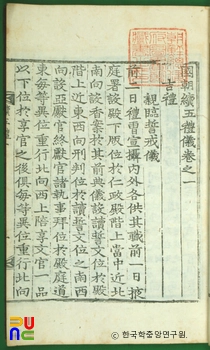 國朝續五禮儀卷之一
吉禮
親臨誓戒儀
前二日禮曹宣攝內外各供其職前一日掖
庭署設殿下版位於仁政殿階上當中近北
南向設香案於其前典儀設讀誓文位於殿
階上近東西向刑判位於讀誓文位之南西
向設亞獻官終獻官諸執事拜位於殿庭道
東每等異位重行北向西上陪享文官一品
以下位於享官之後俱每等異位重行北向
PUNC
한국학중앙연구원